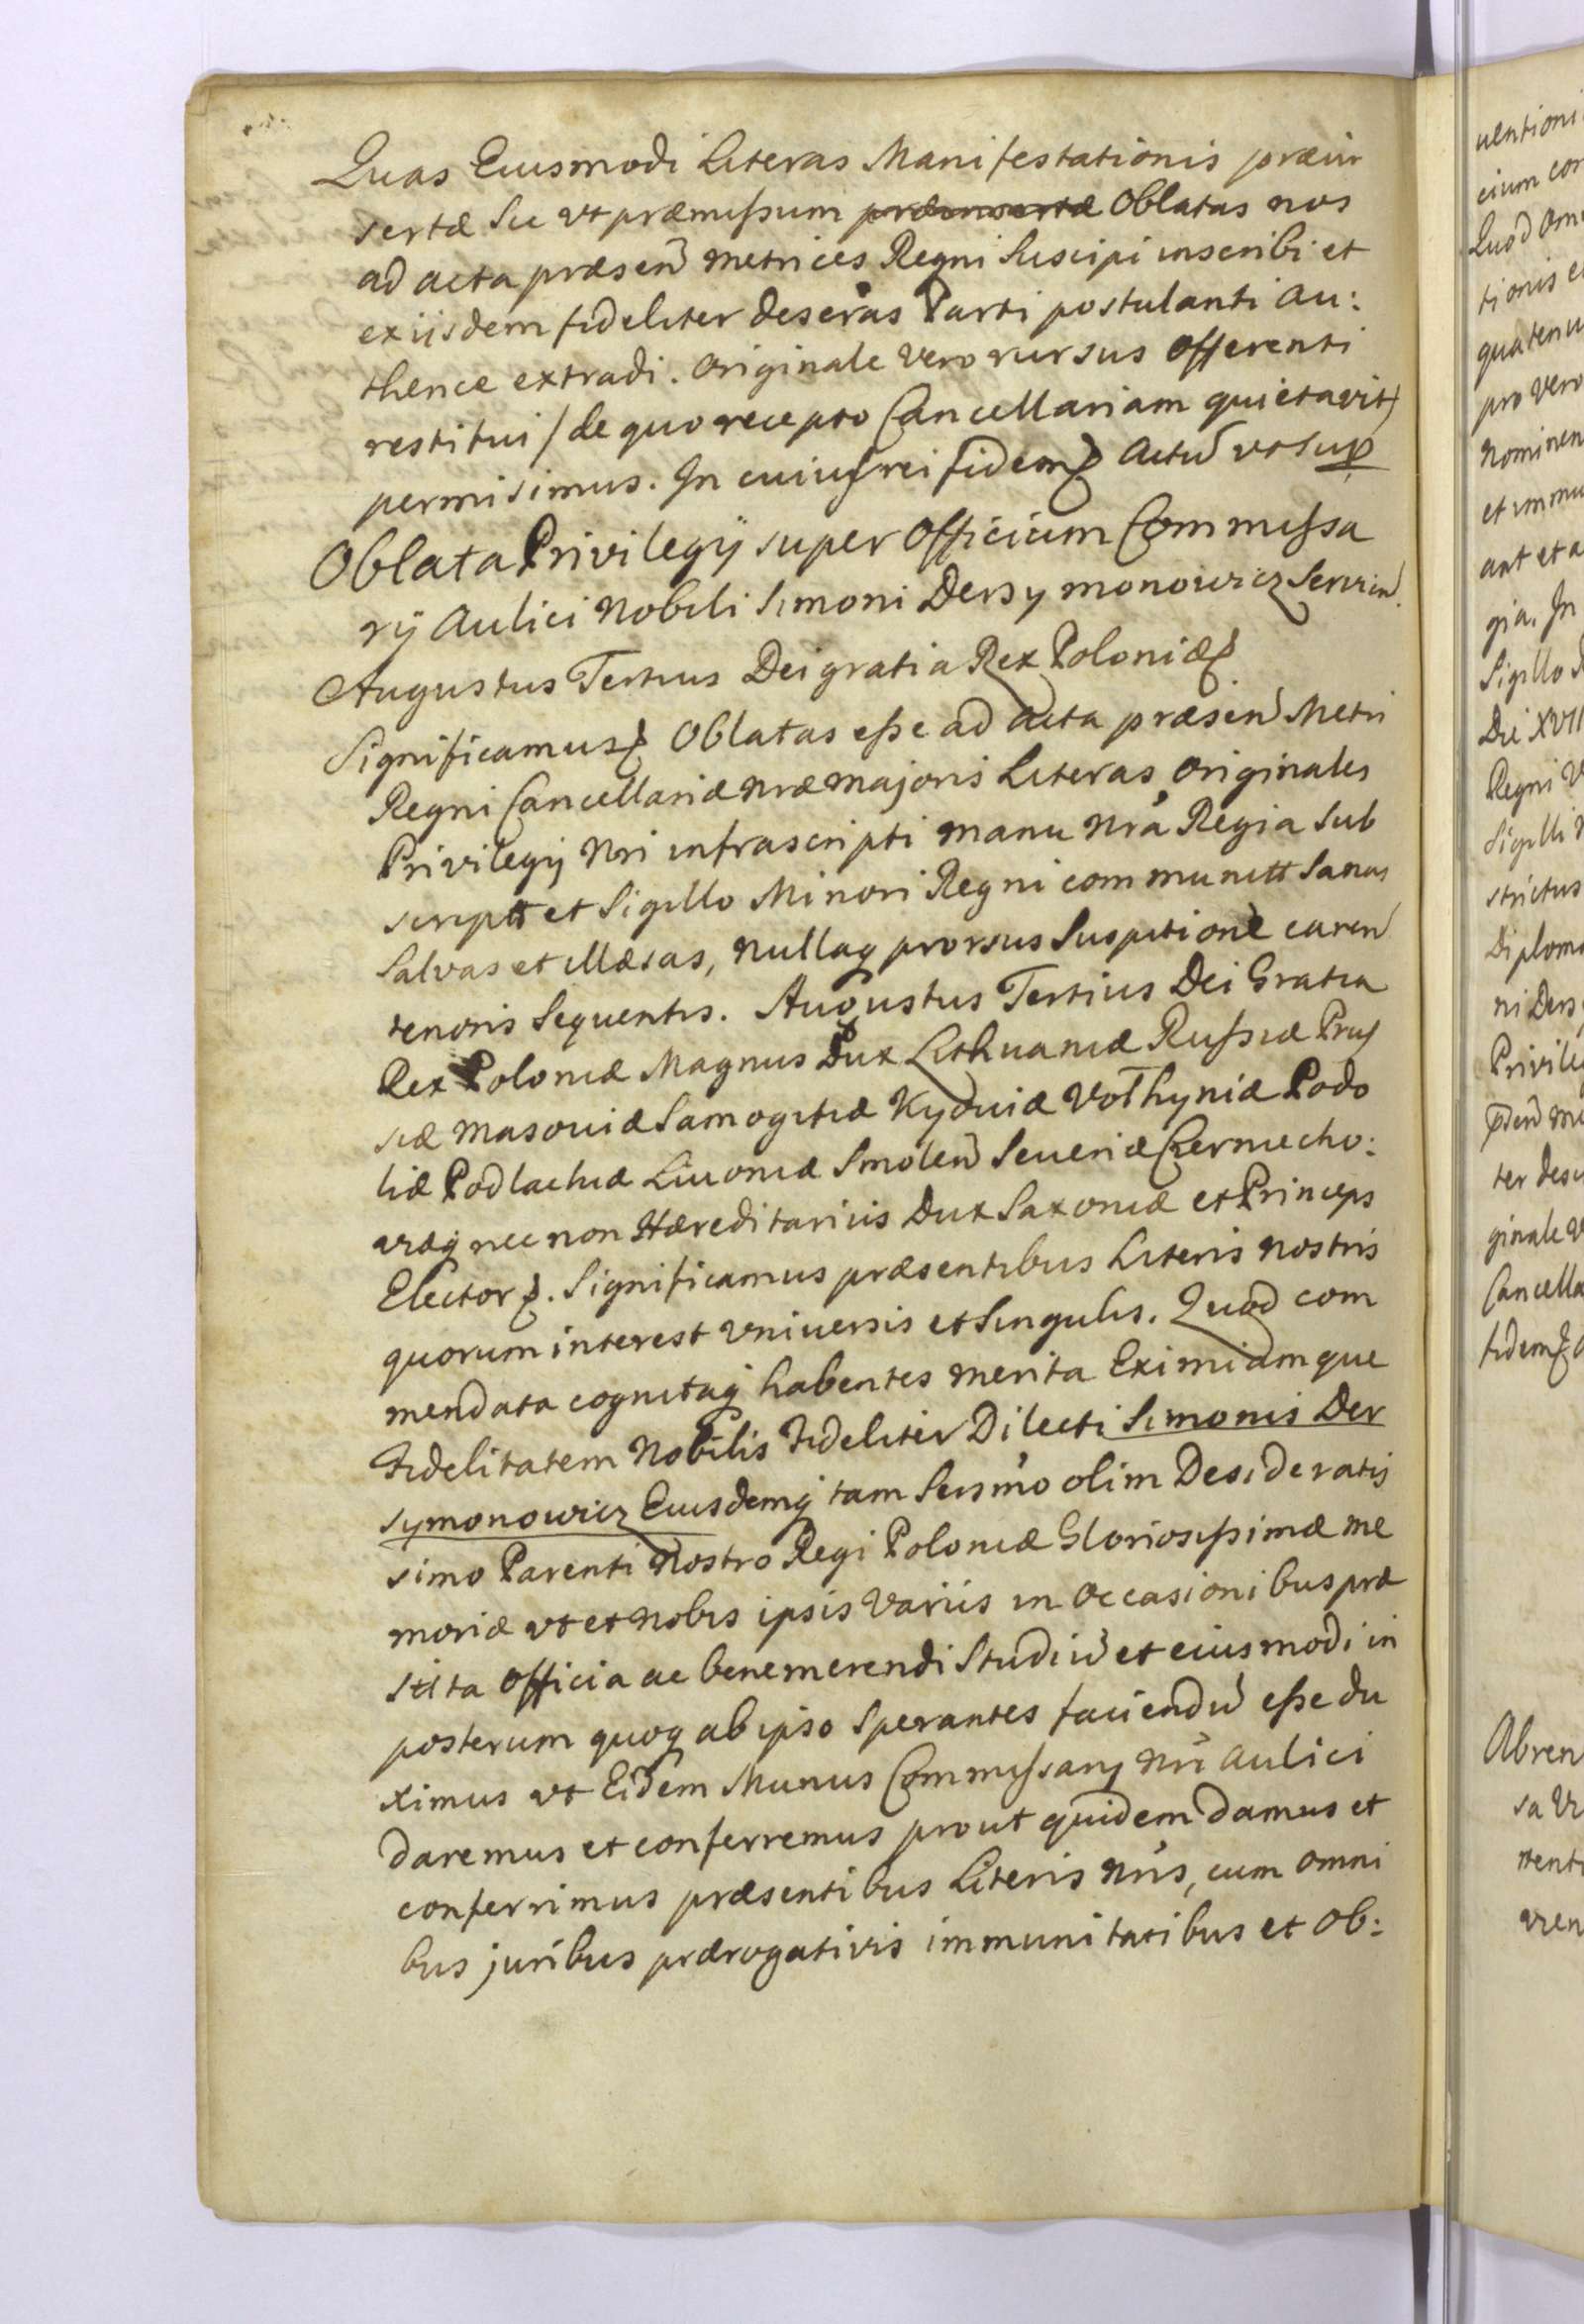 Quas Eiusmodi Literas Manifestationis præin
sertæ Sic vt præmissum præinsertæ Oblatas nos
ad acta præsen metrices Regni Suscipi inscribi et
ex iisdem fideliter descras Parti postulanti au:
thence extradi. Originale vero rursus offerenti
restitui /de quo recepto Cancellariam quietavit/
permisimus. In cuius rei fidem Actũ vt sup
Oblata Privilegÿ super Officium Commissa
rÿ Aulici Nobili Simoni Dersymonowicz Servien.
Augustus Tertius Dei gratia Rex Poloniæ
Significamus Oblatas esse ad Acta præsen Metri
Regni Cancellariæ nræ majoris Literas originales
Privilegÿ Nri infrascripti manu nrã Regia Sub
scriptt et Sigillo Minori Regni communitt Sanas
Salvas et illæsas, nullaq prorsus Suspitione caren
tenoris Sequentis. Augustus Tertius Dei Gratia
Rex Poloniæ Magnus Dux Lithuaniæ Russiæ Prus
siæ Masoviæ Samogitiæ Kyoviæ Volhyniæ Podo
liæ Podlachiæ Livoniæ Smolen Severiæ Czerniecho:
viæq nec non Hæreditarius Dux Saxoniæ et Princeps
Elector. Significamus præsentibus Literis nostris
quorum interest vniversis et Singulis. Quod com
mendata cognitaq habentes merita Eximiamque
Fidelitatem Nobilis Fideliter Dilecti Simonis Der
symonowicz Eiusdemq tam Sersmo olim Desideratis
simo Parenti Nostro Regi Poloniæ Gloriosissimæ me
moriæ vt et Nobis ipsis Variis in Occasionibus præ
stita officia ac benemerendi Studiũ et eiusmodi in
posterum quoq ab ipso Sperantes faciendũ esse du
ximus vt Eidem Munus Commissarÿ Nri Aulici
daremus et conferremus prout quidem damus et
conferrimus præsentibus Literis nris, cum omni
bus juribus prærogativis immunitatibus et ob:
uentioni
cium con
Quod om
tionis e
quatenu
pro vero
nominen
et immu
ant et a
gia. In
Sigillo
Die XVII
Regni V
Sigilli
strictus
Diploma
ni Ders
Privileg
ter des
ginale v
Cancella
fidem
Abren
sa
rent